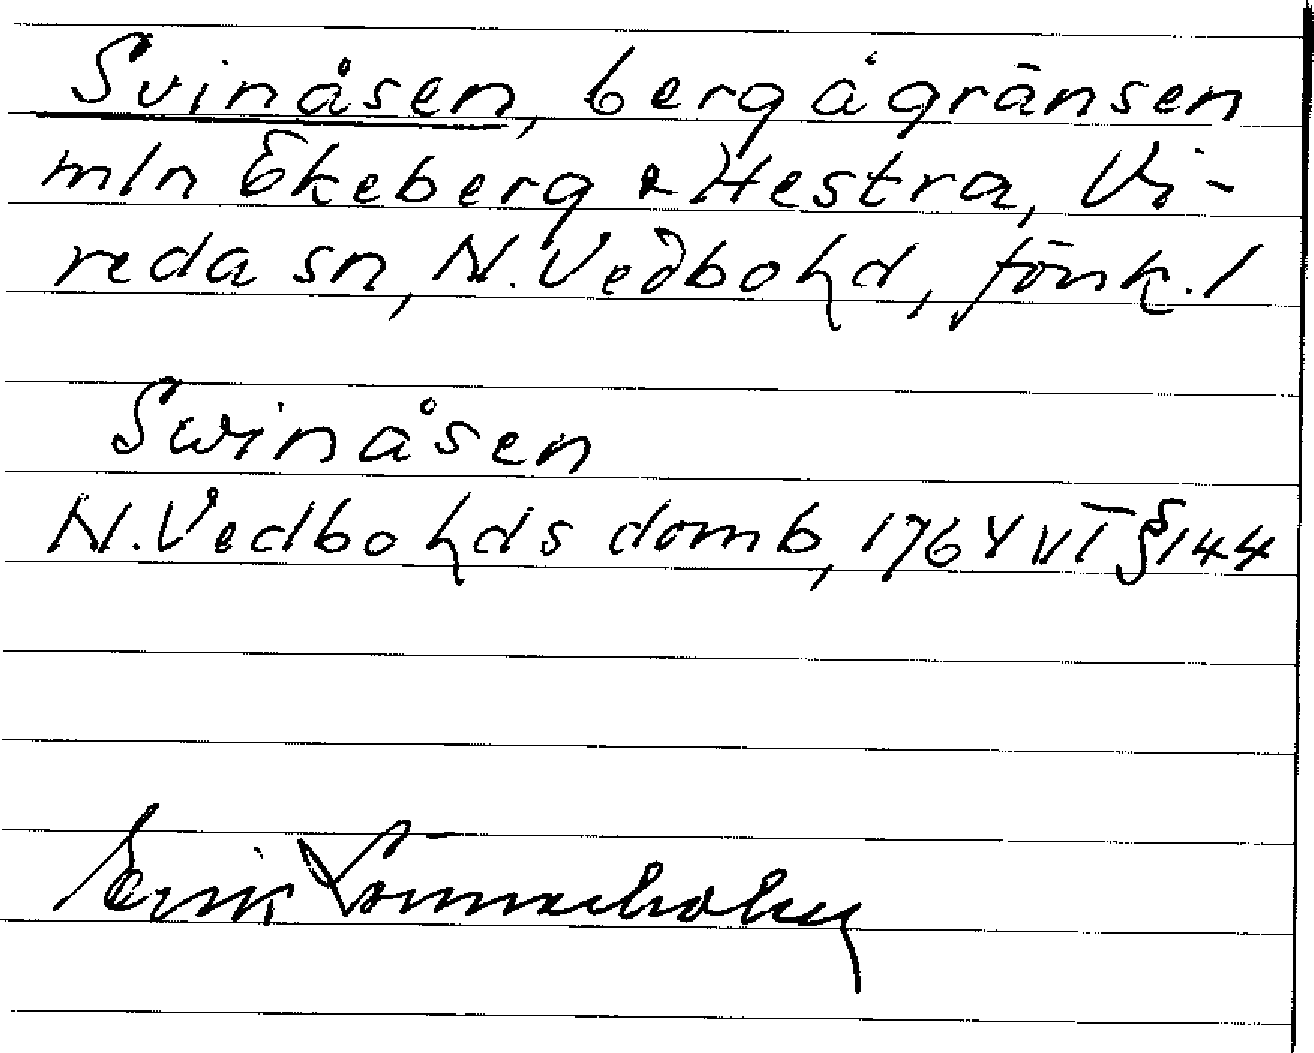 Svinåsen, berg å gränsen
mln Ekeberg & Hestra, Vi-
reda sn, N. Vedbo hd, Jönk. l
Swinåsen
N. Vedbo hds domb, 1764 VT § 144
Erik